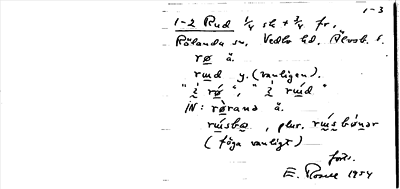 1-3
1-2 Rud 1/4 sk + 3/4 fr,
Rölanda sn, Vedbo hd, Älvsb. l.
rø ä.
rud y. (vanligen).
"i rø", "i rud"
IN: rørana ä.
rusbø, plur. rusbönar
(föga vanligt)
forts.
E. Rosell 1954